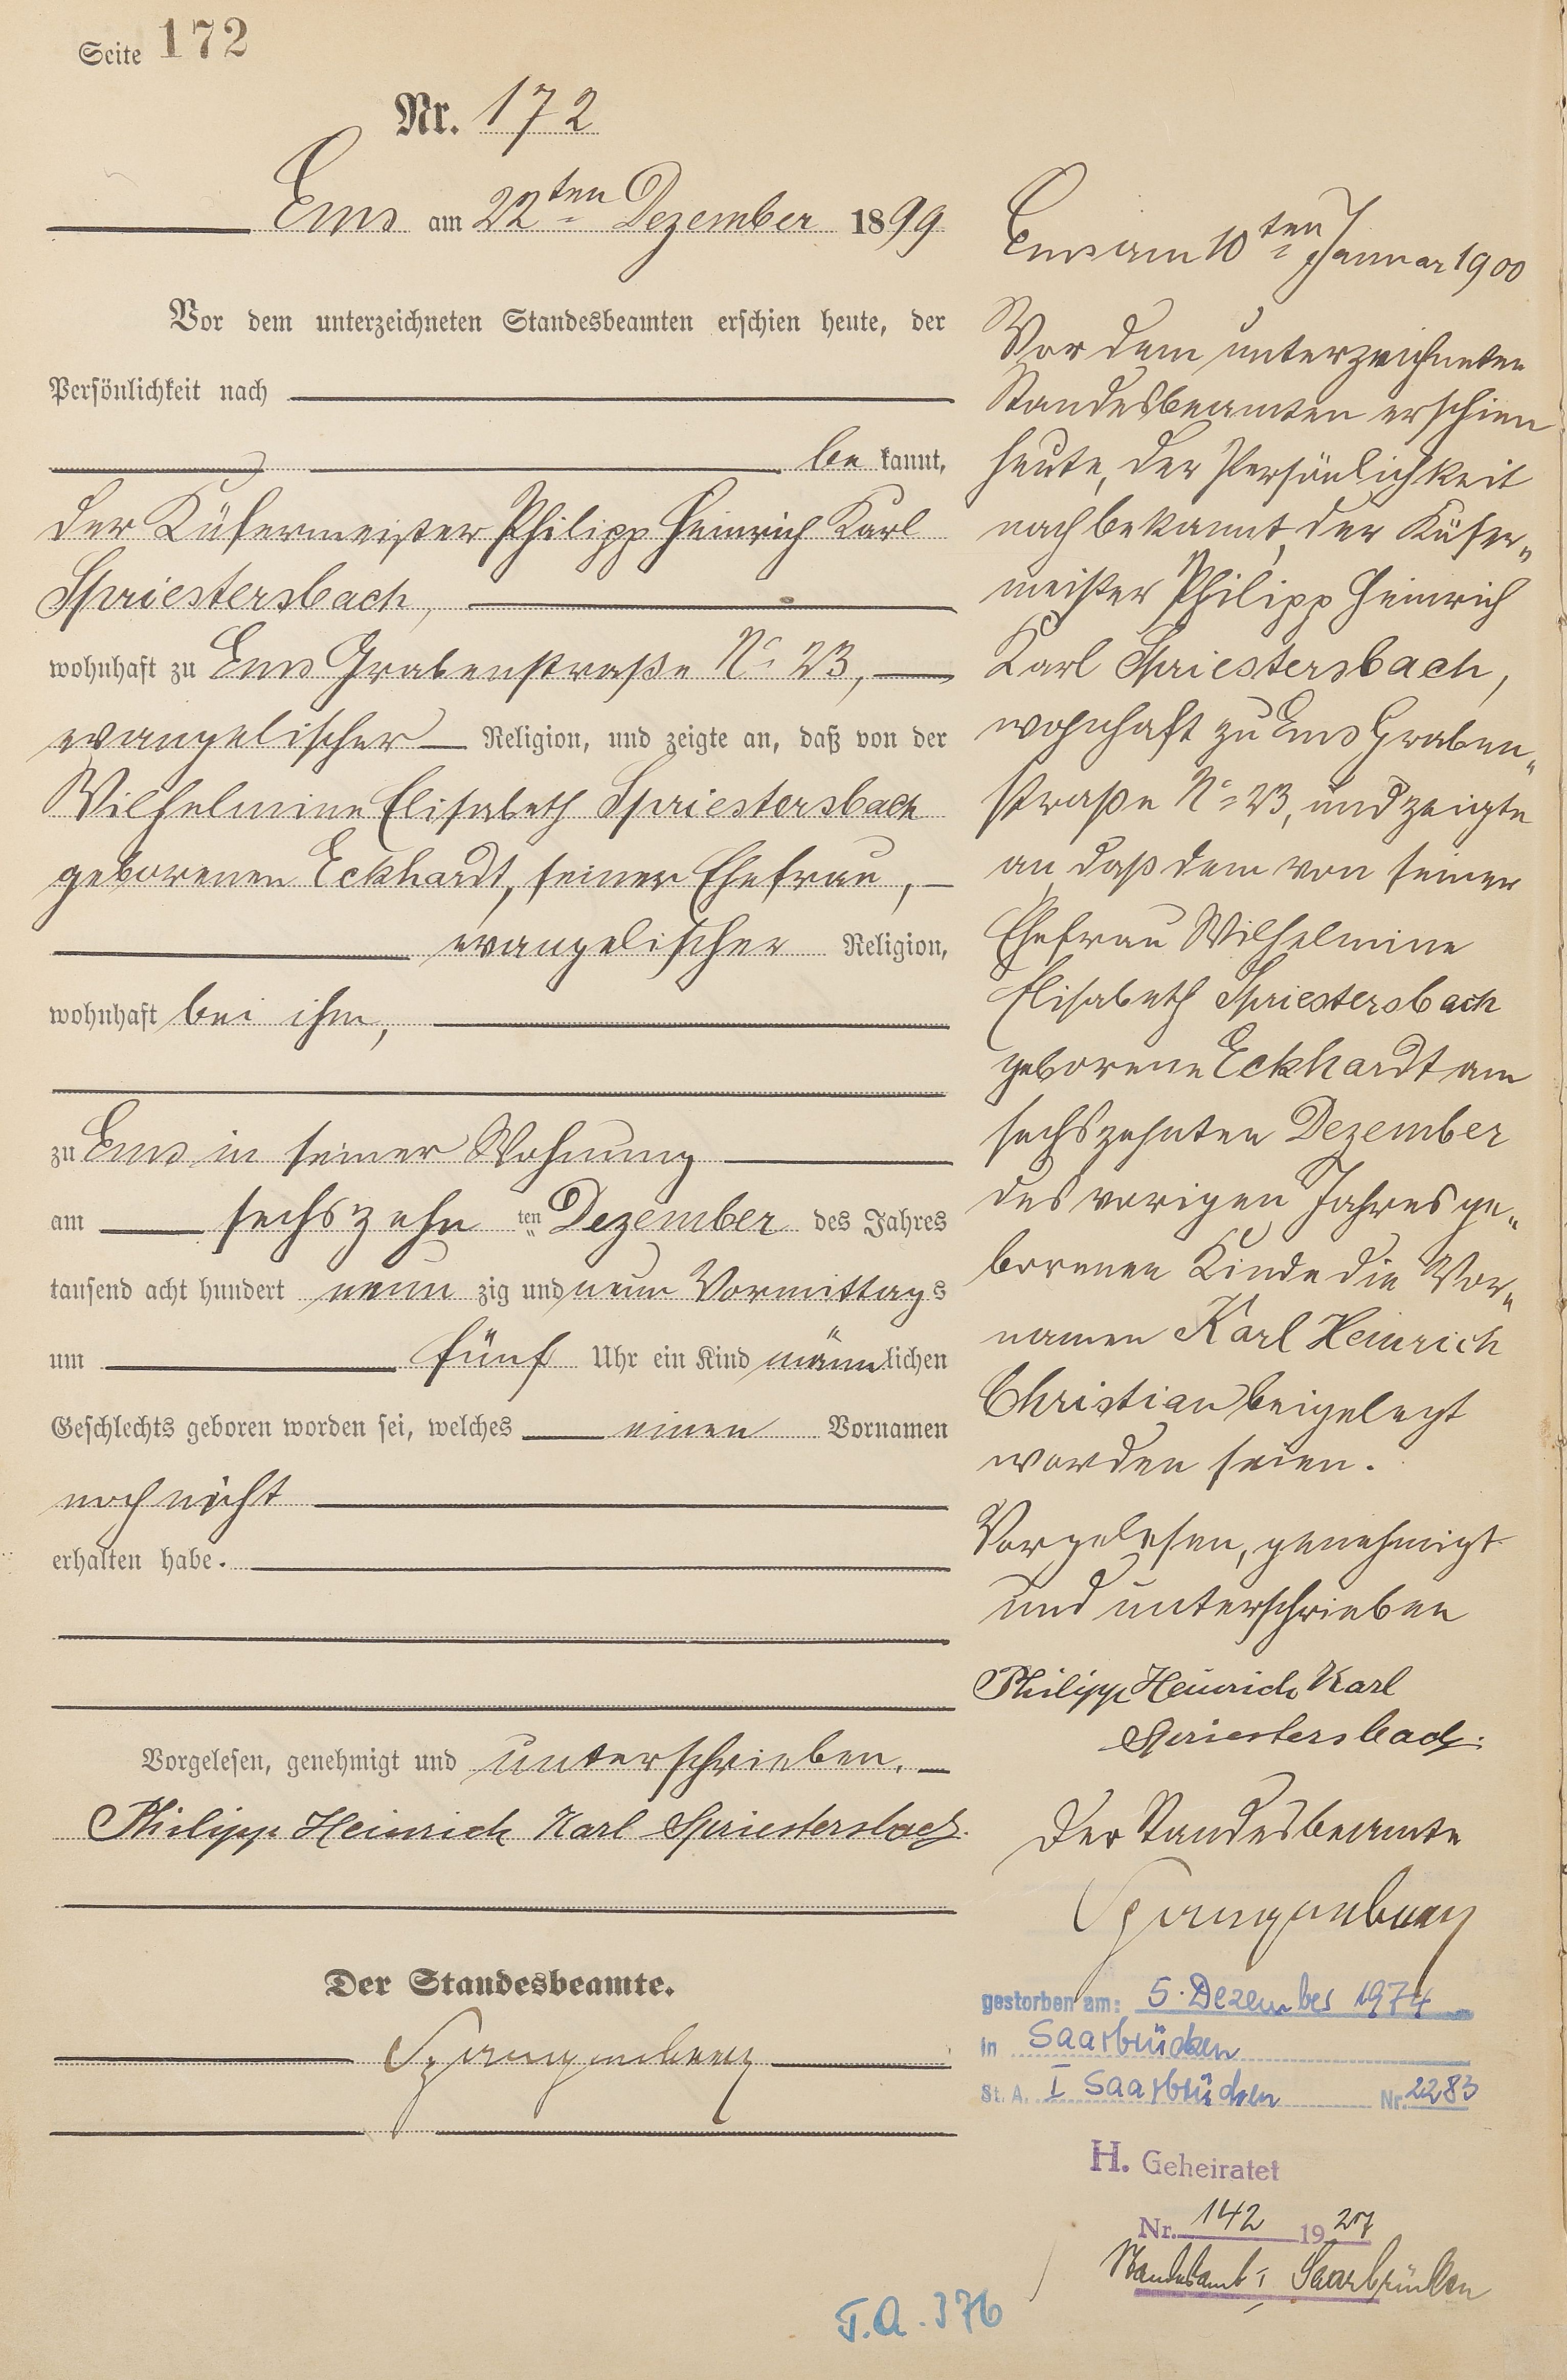 Seite 172
Nr. 172
Ems am 22ten Dezember 1899
Vor dem unterzeichneten Standesbeamten erschien heute, der
Persönlichkeit nach
be kannt,
der Küfermeister Philipp Heinrich Karl
Spriestersbach,
wohnhaft zu Ems Grabenstraße No 23,
evangelischer Religion, und zeigte an, daß von der
Wilhelmine Elisabeth Spriestersbach
geborenen Eckhardt, seiner Ehefrau,
evangelischer Religion,
wohnhaft bei ihm,
zu Ems in seiner Wohnung
am sechszehn ten Dezember des Jahres
tausend acht hundert neun zig und neun Vormittags
um fünf Uhr ein Kind männlichen
Geschlechts geboren worden sei, welches einen Vornamen
noch nicht
erhalten habe.
Vorgelesen, genehmigt und unterschrieben.
Philipp Heinrich Karl Spriestersbach.
Der Standesbeamte.
Spangenberg
Ems am 10ten Januar 1900
Vor dem unterzeichneten
Standesbeamten erschien
heute, der Persönlichkeit
nach bekannt, der Küfer„
meister Philipp Heinrich
Karl Spriestersbach,
wohnhaft zu Ems Graben„
straße No 23, und zeigte
an, daß dem von seiner
Ehefrau Wilhelmine
Elisabeth Spriestersbach
geborene Eckhardt am
sechszehnten Dezember
des vorigen Jahres ge„
borenen Kinde die Vor„
namen Karl Heinrich
Christian beigelegt
worden seien.
Vorgelesen, genehmigt
und unterschrieben
Philipp Heinrich Karl
Spriestersbach.
Der Standesbeamte
Spangenberg
gestorben am: 5. Dezember 1974
in Saarbrücken
St. A. I Saarbrücken Nr. 2283
H. Geheiratet
Nr. 142 1927
Standesamt I Saarbrücken
T.A. 376